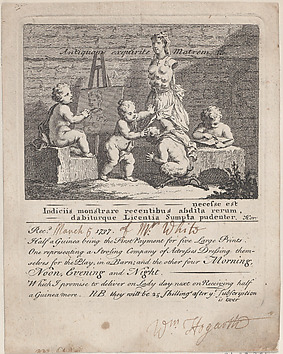 Antiquam exquirite Matrem.
necesse est
Indiciis monstrare recentibus abdita rerum,
dabiturque Licentia Sumpta pudenter, Hor.
Rec.d March 6 1737. of Mr. White
Half a Guinea being the First Payment for five Large Prints
One representing a Stroling Company of Actresses Dressing them-
selves for the Play, in a Barn; and the other four Morning,
Noon, Evening and Night.
Which I promise to deliver on Lady day next on Receiving half
a Guinea more. N.B they will be 25 Shillings after ye. Subscription
is over
Wm Hogarth